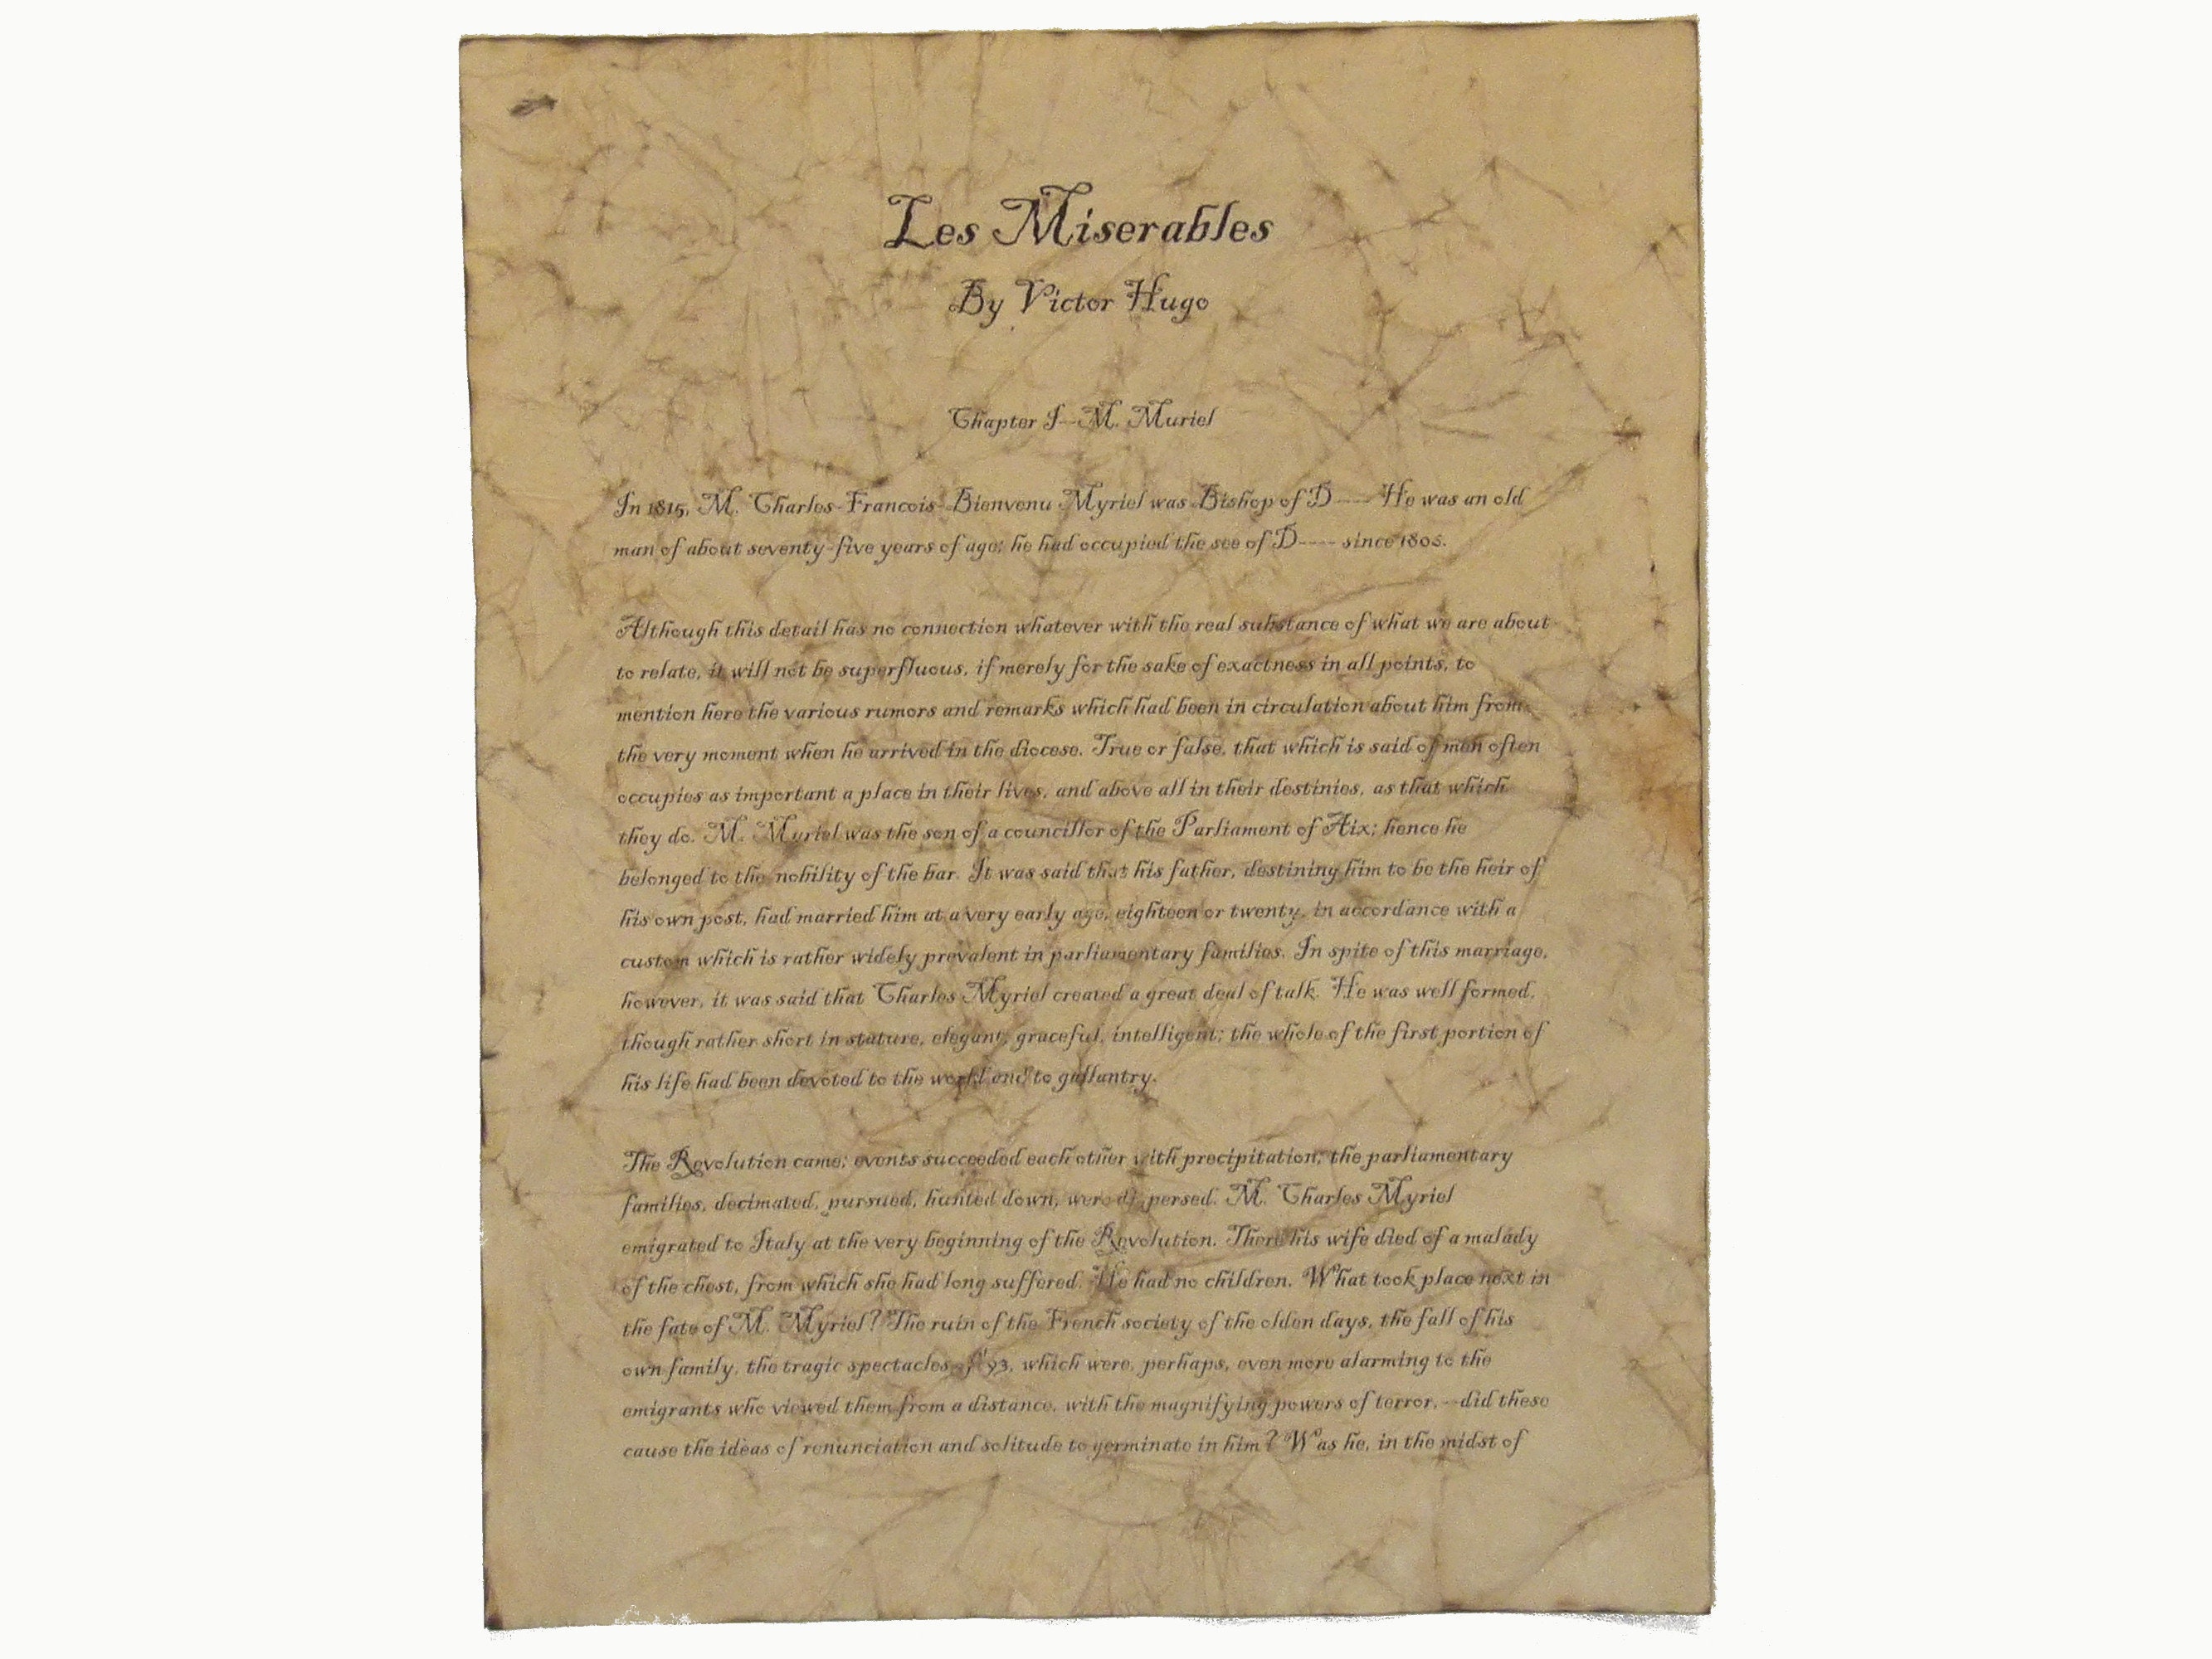 Les Miserables
By Victor Hugo
Chapter I--M. Muriel
In 1815, M. Charles-Francois-Bienvenu Myriel was Bishop of D---- He was an old
man of about seventy-five years of age; he had occupied the see of D---- since 1806.
Although this detail has no connection whatever with the real substance of what we are about
to relate, it will not be superfluous, if merely for the sake of exactness in all points, to
mention here the various rumors and remarks which had been in circulation about him from
the very moment when he arrived in the diocese. True or false, that which is said of men often
occupies as important a place in their lives, and above all in their destinies, as that which
they do. M. Myriel was the son of a councillor of the Parliament of Aix; hence he
belonged to the nobility of the bar. It was said that his father, destining him to be the heir of
his own post, had married him at a very early age, eighteen or twenty, in accordance with a
custom which is rather widely prevalent in parliamentary families. In spite of this marriage,
however, it was said that Charles Myriel created a great deal of talk. He was well formed,
though rather short in stature, elegant, graceful, intelligent; the whole of the first portion of
his life had been devoted to the world and to gallantry.
The Revolution came; events succeeded each other with precipitation; the parliamentary
families, decimated, pursued, hunted down, were dispersed. M. Charles Myriel
emigrated to Italy at the very beginning of the Revolution. There his wife died of a malady
of the chest, from which she had long suffered. He had no children. What took place next in
the fate of M. Myriel? The ruin of the French society of the olden days, the fall of his
own family, the tragic spectacles of '93, which were, perhaps, even more alarming to the
emigrants who viewed them from a distance, with the magnifying powers of terror,--did these
cause the ideas of renunciation and solitude to germinate in him? Was he, in the midst of